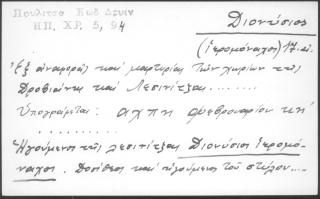 Πουλίτσα Κωδ Δρυιν
ΗΠ. ΧΡ. 5, 94
Διονύσιος
(ἱερομόναχος) 17. αἰ.
Ἐξ ἀναφορᾶς καὶ μαρτυρίας τῶν χωρίων τῆς
Δροβιάνης καὶ Λεσινίτζας.......
Ὑπογράφεται: αχπη φεβρουαρίου κη'
..........
Ἡγούμενος τῆς λεσινίτζας Διονύσιος ἱερομό-
ναχος. Δοσίθεος καὶ ἡγούμενος τοῦ στύλου....